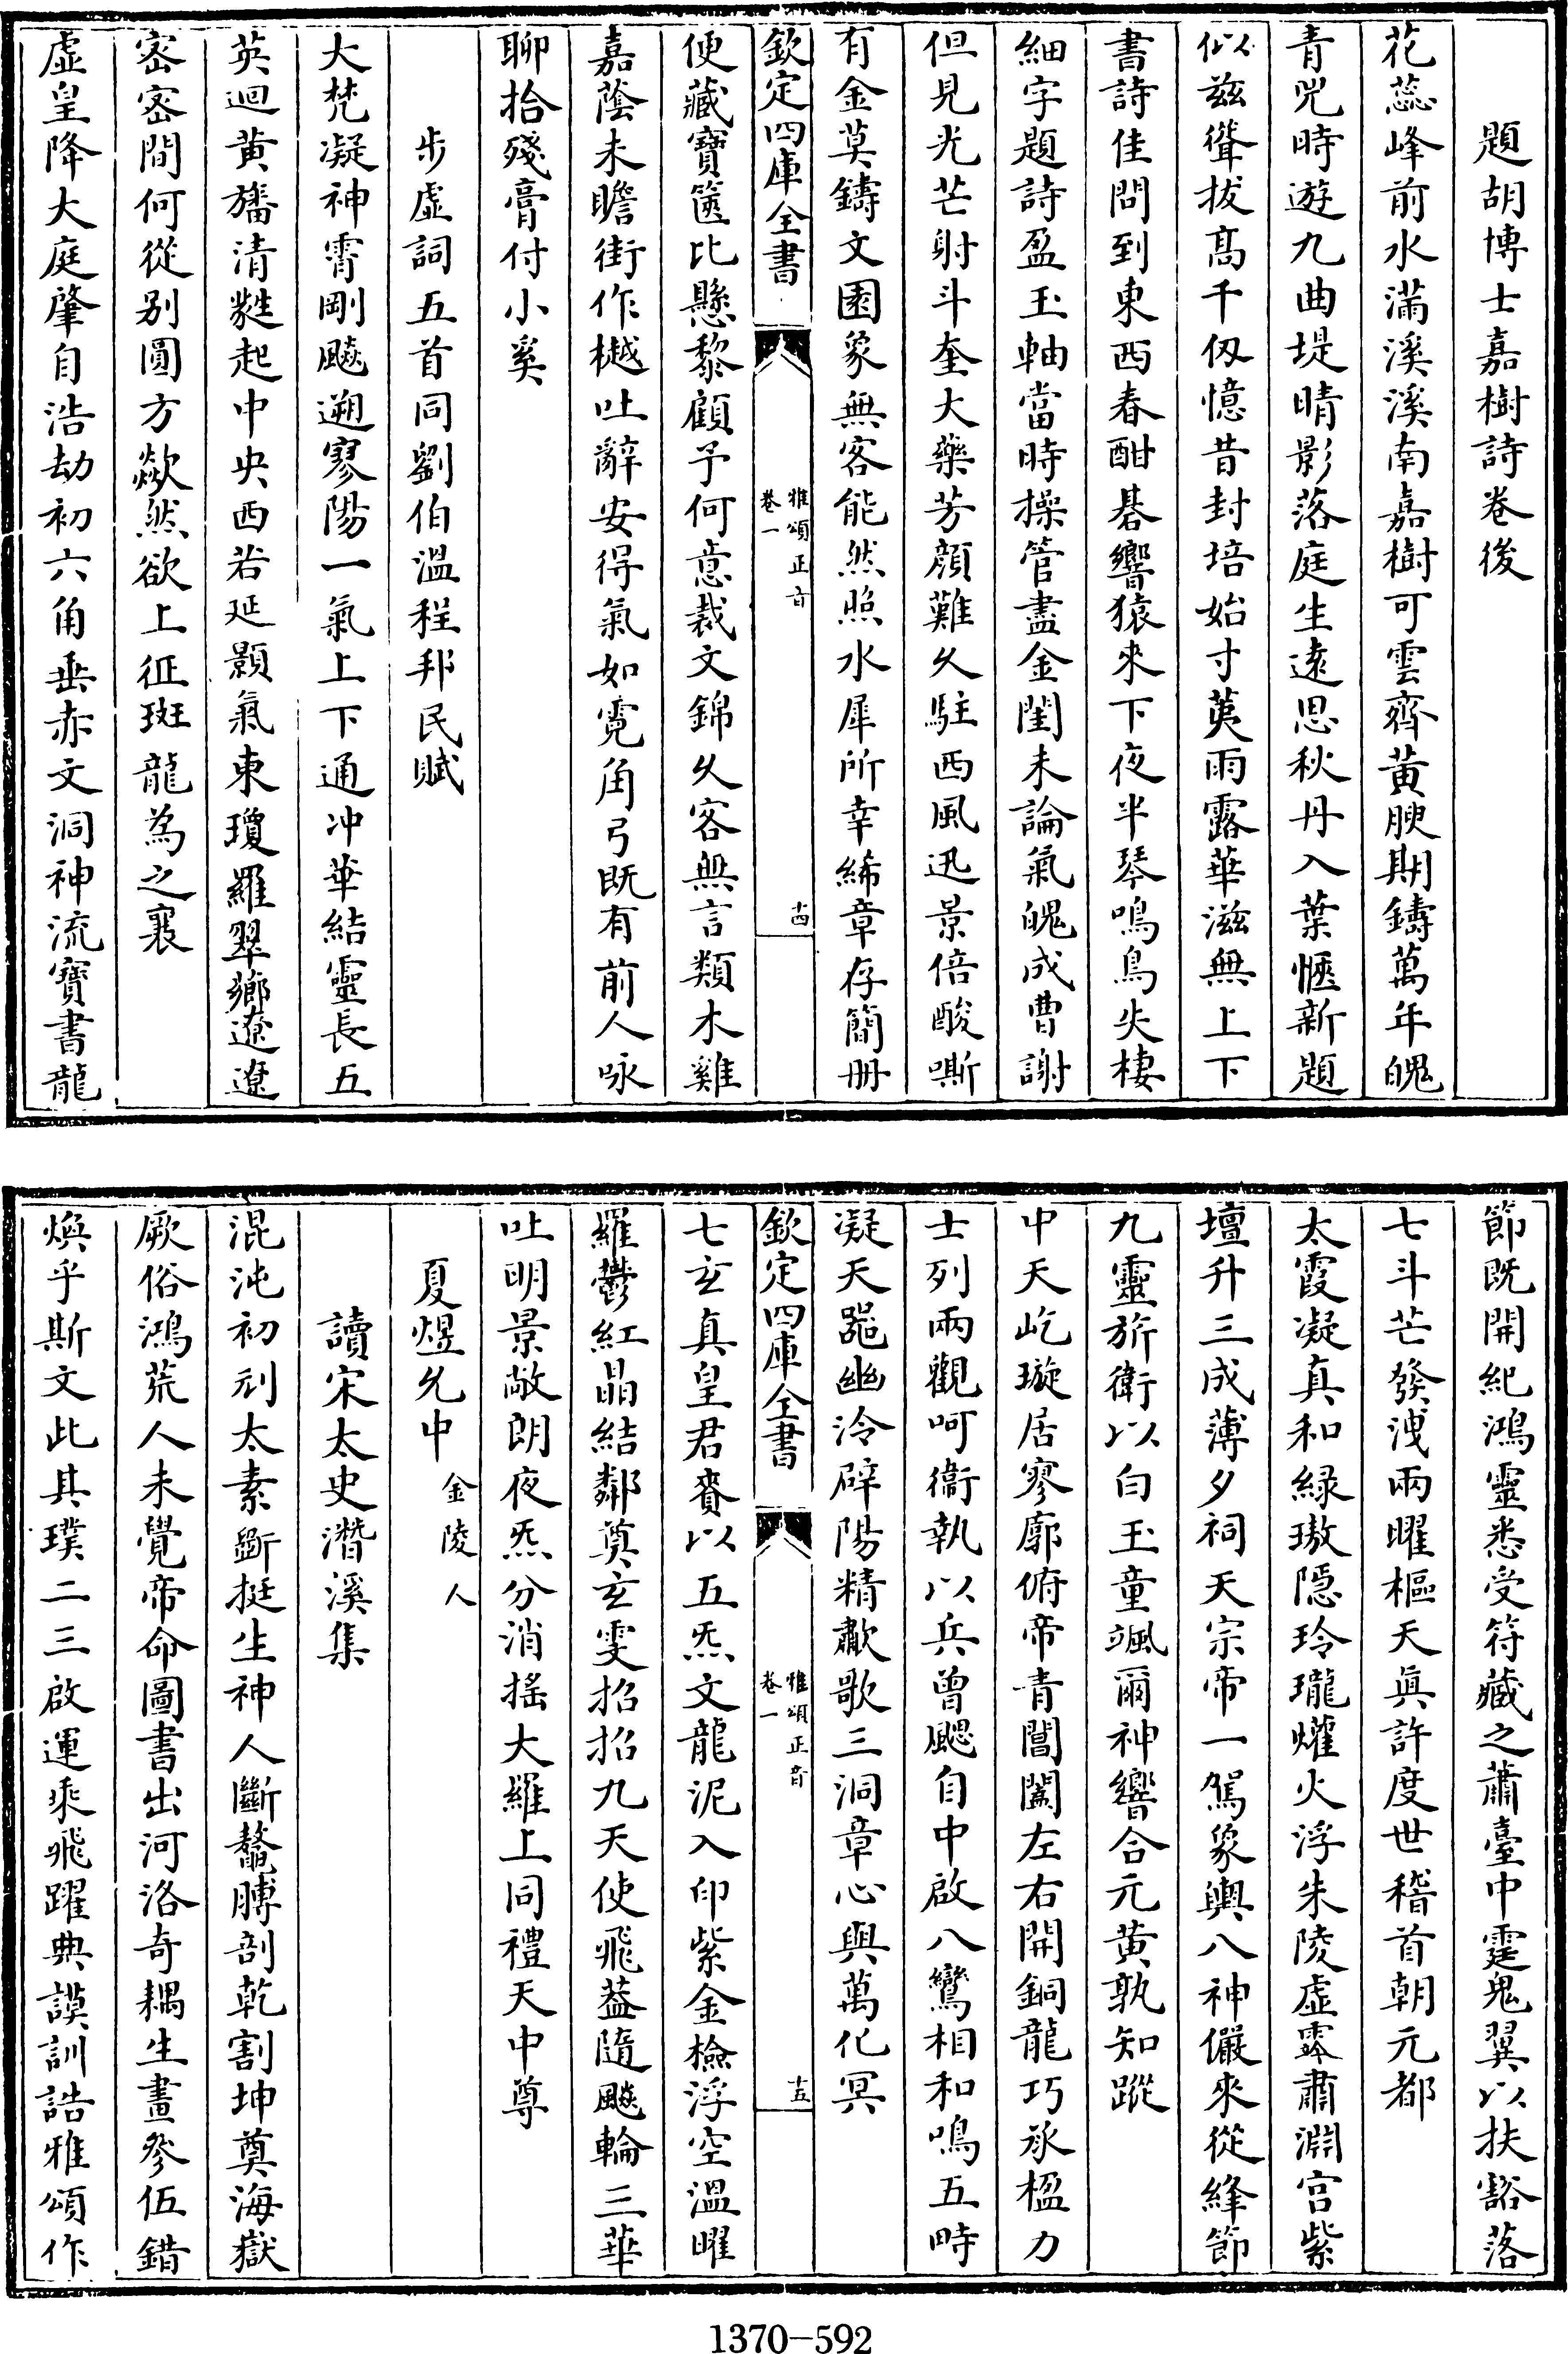 題胡博士嘉樹詩卷後
花蕊峰前水滿溪溪南嘉樹可雲齊黃腴期鑄萬年魄
青兕時遊九曲堤晴影落庭生遠思秋丹入葉愜新題
似兹聳拔髙千仭憶昔封培始寸荑雨露華滋無上下
書詩佳問到東西春酣碁響猿來下夜半琴鳴鳥失棲
細字題詩盈玉軸當時操管盡金閨未論氣魄成曹謝
但見光芒射斗奎大藥芳顔難乆駐西風迅景倍酸嘶
有金莫鑄文園象無客能然照水犀所幸絺章存簡册
欽定四庫全書
雅頌正音
卷一
十四
便藏寶篋比懸黎顧予何意裁文錦乆客無言類木雞
嘉蔭未瞻街作樾吐辭安得氣如霓角弓既有前人咏
聊拾殘膏付小奚
步虚詞五首同劉伯溫程邦民賦
大梵凝神霄剛飈遡寥陽一氣上下通冲華結靈長五
英迴黄旛清蕤起中央西若延顥氣東瓊羅翠薌遼遼
宻宻間何從别圓方歘然欲上征斑龍為之襄
虛皇降大庭肇自浩劫初六角垂赤文洞神流寶書龍
節既開紀鴻靈悉受符藏之蕭臺中霆鬼翼以扶豁落
七斗芒發洩兩曜樞天真許度世稽首朝元都
太霞凝真和緑璈隠玲瓏爟火浮朱陵虚霛肅淵宫紫
壇升三成薄夕祠天宗帝一駕象輿八神儼來從絳節
九靈旂衛以白玉童颯爾神響合元黄孰知蹤
中天屹璇居寥廓俯帝青閶闔左右開銅龍巧承楹力
士列兩觀呵衞執以兵曾颸自中啟八鸞相和鳴五畤
凝天罷幽泠辟陽精歗歌三洞章心與萬化冥
欽定四庫全書
雅頌正音
卷一
十五
七玄真皇君賚以五炁文龍泥入印紫金檢浮空溫曜
羅鬱紅晶結鄰奠玄雯招招九天使飛葢隨飈輪三華
吐明景敞朗夜炁分消揺大羅上同禮天中尊
夏煜允中 金陵人
讀宋太史潛溪集
混沌初刓太素斵挺生神人斷鼇膊剖乾割坤奠海嶽
厥俗鴻荒人未覺帝命圖書出河洛奇耦生畫參伍錯
煥乎斯文此其璞二三啟運乘飛躍典謨訓誥雅頌作
1370-592